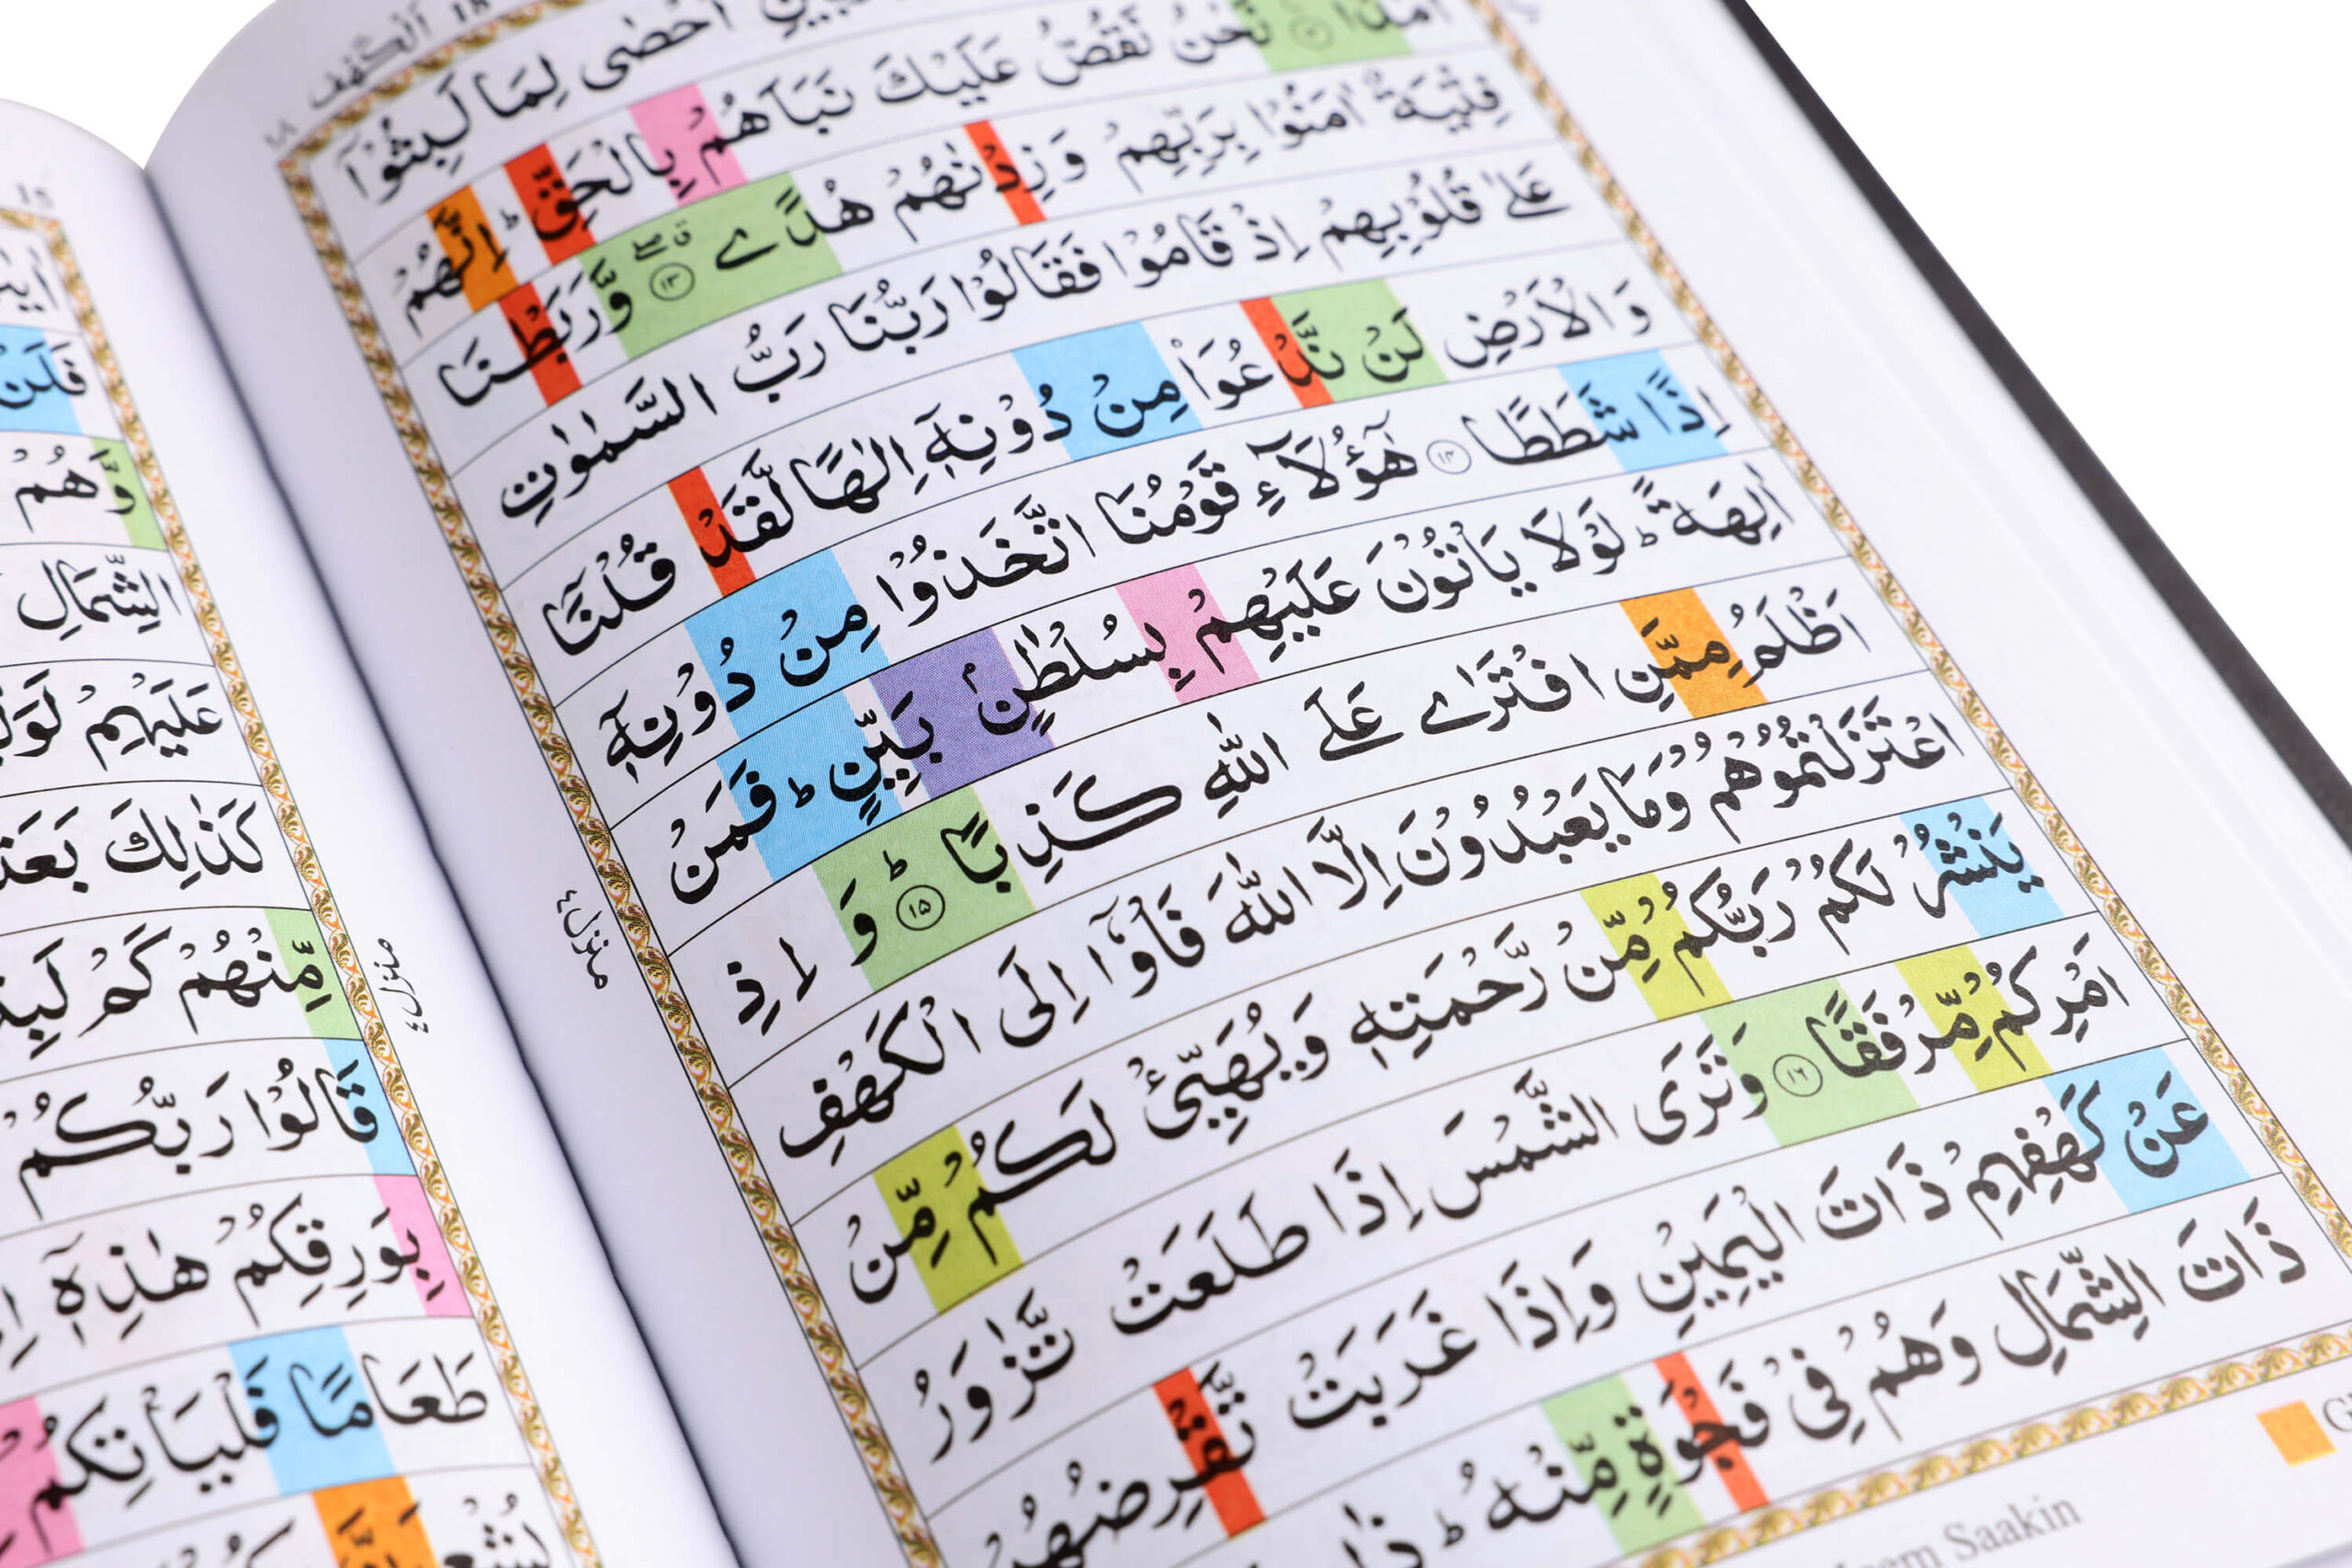 اَلْكَهْف ١٨
اَحْصٰى لِمَا لَبِثُوْۤا
اَمَدًا نَحْنُ نَقُصُّ عَلَيْكَ نَبَاَهُمْ بِالْحَقِّ ؕ اِنَّهُمْ
فِتْيَةٌ اٰمَنُوْا بِرَبِّهِمْ وَزِدْنٰهُمْ هُدًى ۱۳ وَّرَبَطْنَا
عَلٰى قُلُوْبِهِمْ اِذْ قَامُوْا فَقَالُوْا رَبُّنَا رَبُّ السَّمٰوٰتِ
وَالْاَرْضِ لَنْ نَّدْعُوَا۠ مِنْ دُوْنِهٖۤ اِلٰهًا لَّقَدْ قُلْنَاۤ
اِذًا شَطَطًا ۱۴ هٰۤؤُلَآءِ قَوْمُنَا اتَّخَذُوْا مِنْ دُوْنِهٖۤ
اٰلِهَةً ؕ لَوْلَا يَاْتُوْنَ عَلَيْهِمْ بِسُلْطٰنٍۭ بَيِّنٍ ؕ فَمَنْ
اَظْلَمُ مِمَّنِ افْتَرٰى عَلَى اللّٰهِ كَذِبًا ۱۵ ؕ وَاِذِ
اعْتَزَلْتُمُوْهُمْ وَمَا يَعْبُدُوْنَ اِلَّا اللّٰهَ فَاْوٗۤا اِلَى الْكَهْفِ
يَنْشُرْ لَكُمْ رَبُّكُمْ مِّنْ رَّحْمَتِهٖ وَيُهَيِّئْ لَكُمْ مِّنْ
اَمْرِكُمْ مِّرْفَقًا ۱۶ وَتَرَى الشَّمْسَ اِذَا طَلَعَتْ تَّزٰوَرُ
عَنْ كَهْفِهِمْ ذَاتَ الْيَمِيْنِ وَاِذَا غَرَبَتْ تَّقْرِضُهُمْ
ذَاتَ الشِّمَالِ وَهُمْ فِيْ فَجْوَةٍ مِّنْهُ ؕ
منزل٤
Saakin
فَلَنْ
وَّهُمْ
الشِّمَالِ
عَلَيْهِمْ
كَذٰلِكَ
مِّنْهُمْ كَمْ
قَالُوْا رَبُّكُمْ
بِوَرِقِكُمْ هٰذِهٖۤ
طَعَامًا فَلْيَاْتِكُمْ
منزل٤